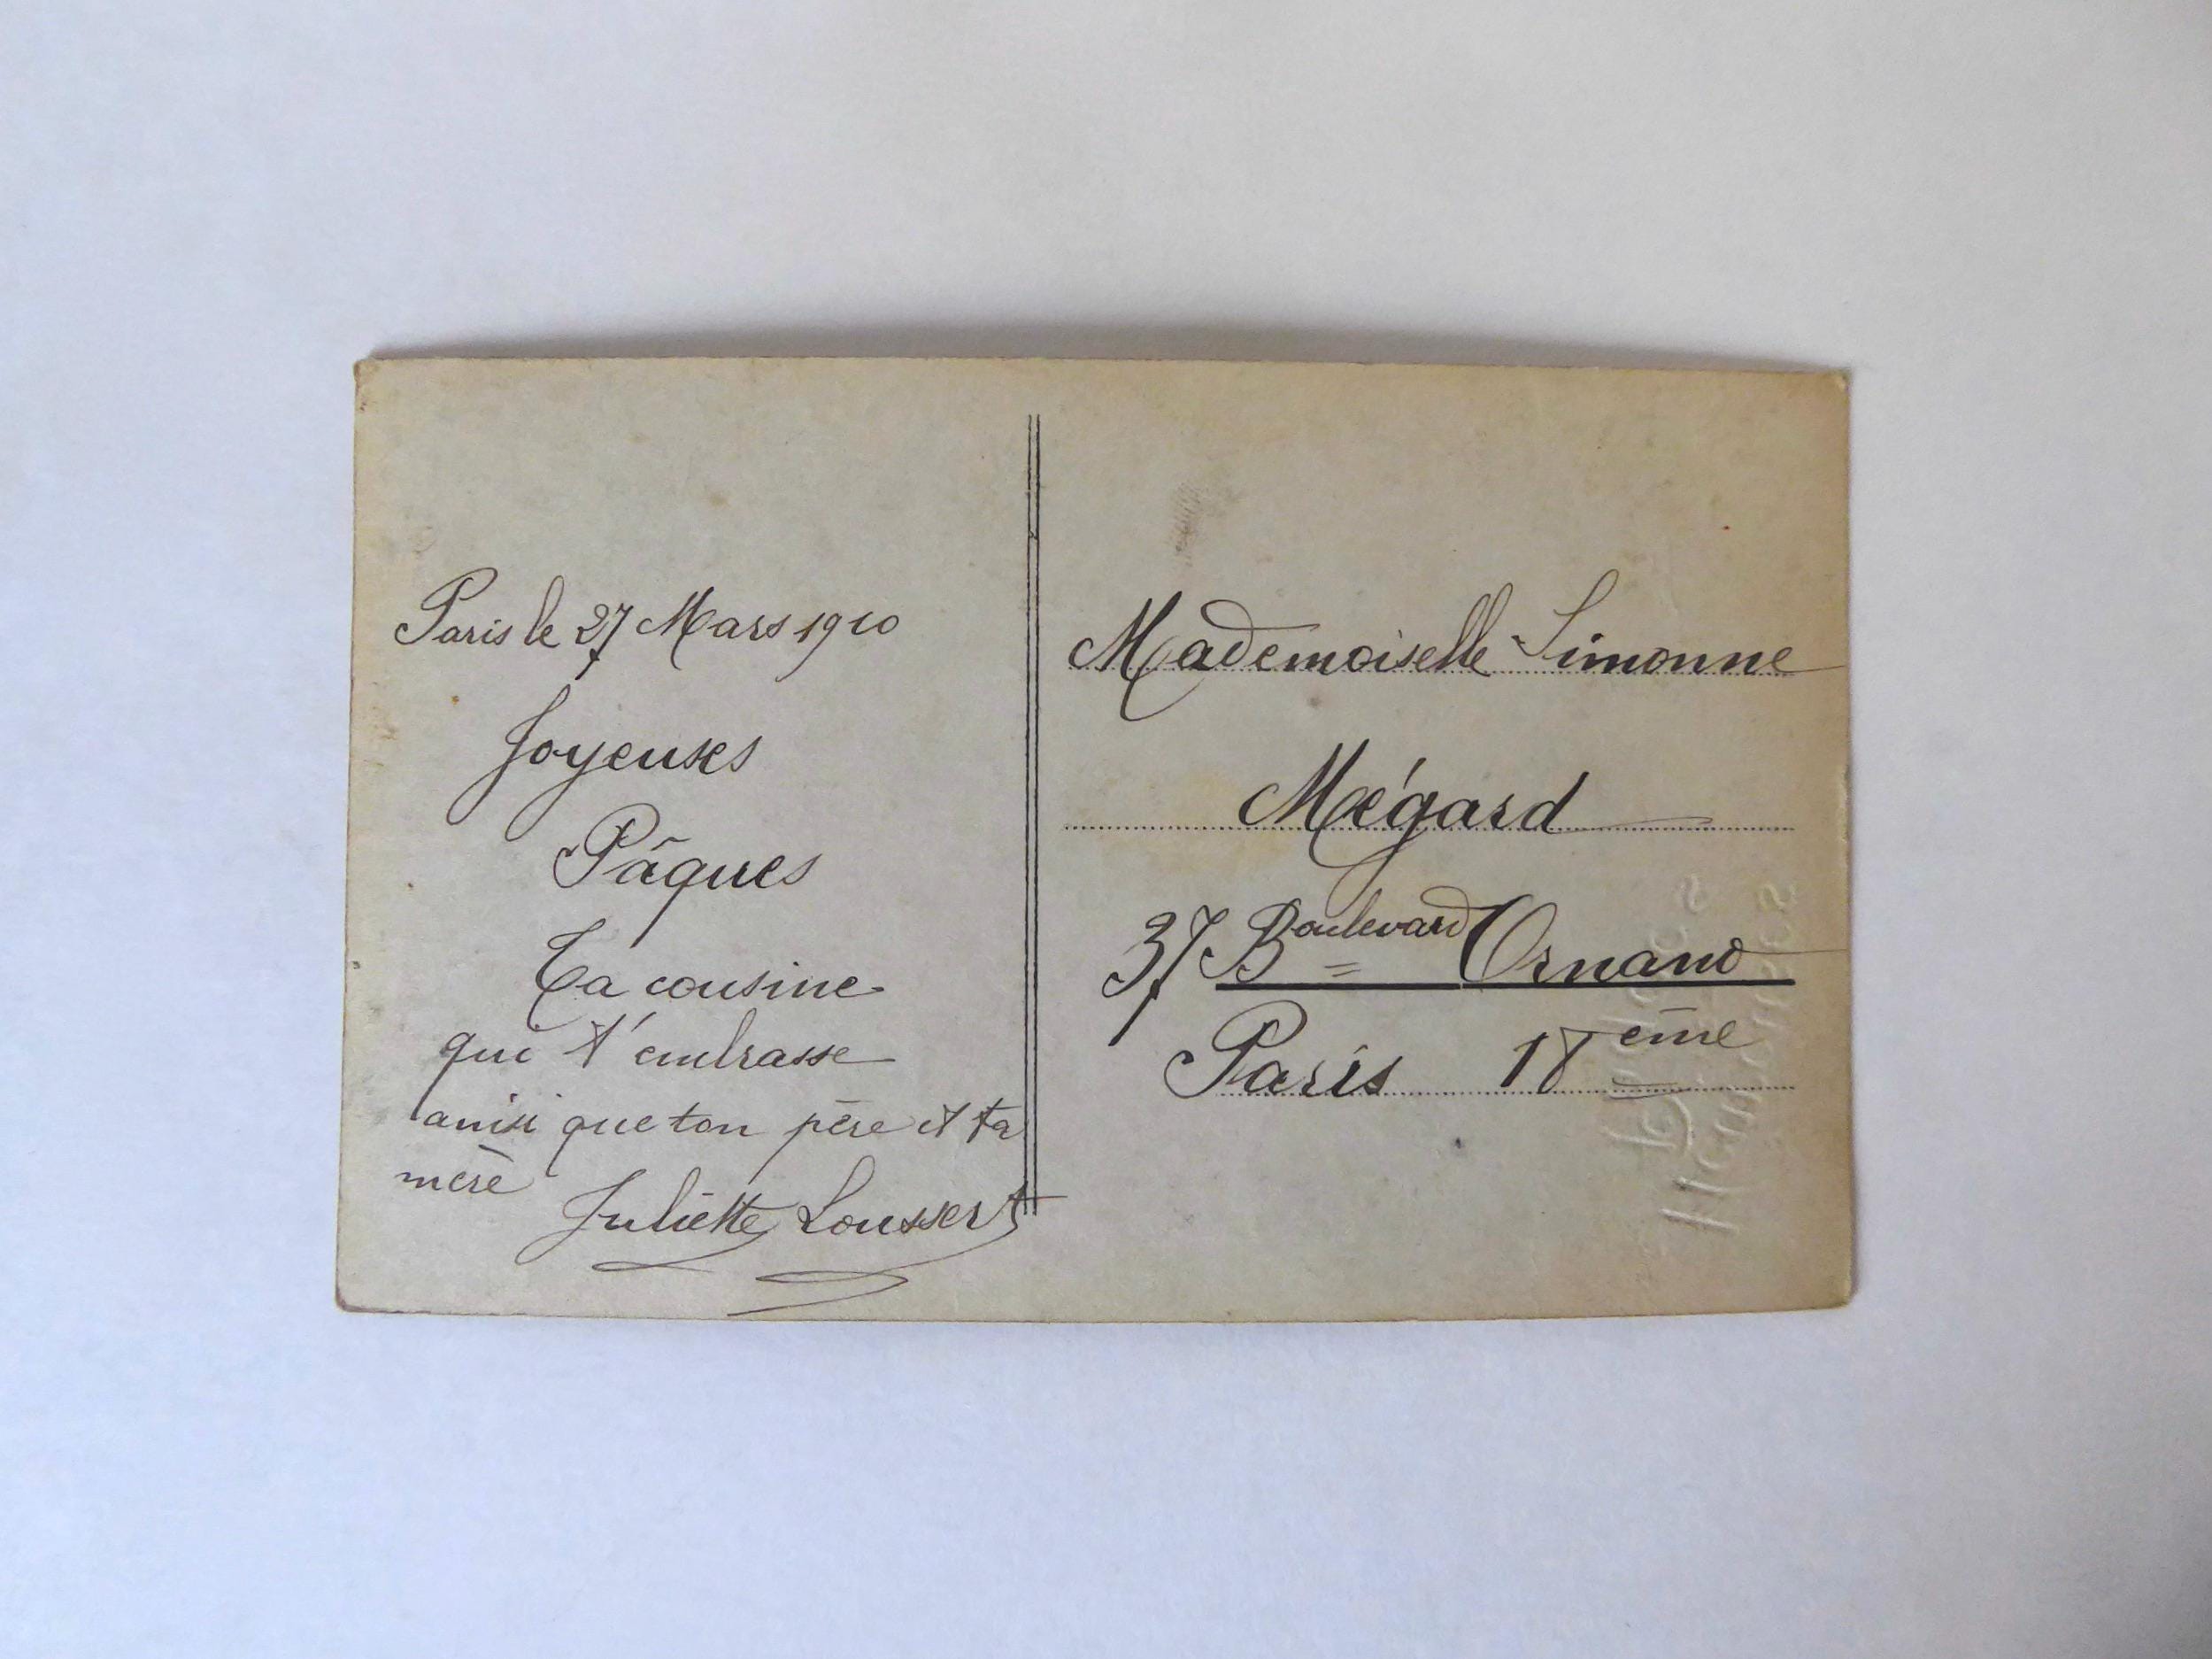 Paris le 27 Mars 1910
Joyeuses
Pâques
Ta cousine
qui t'embrasse
ainsi que ton père et ta
mère
Juliette Loussert
Mademoiselle Simonne
Mégard
37 Boulevard Ornano
Paris 18ème